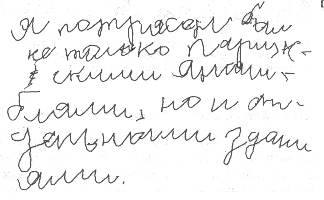 я потрясен был
не только париж-
скими ансам-
блями, но и от-
дельными здани
ями.